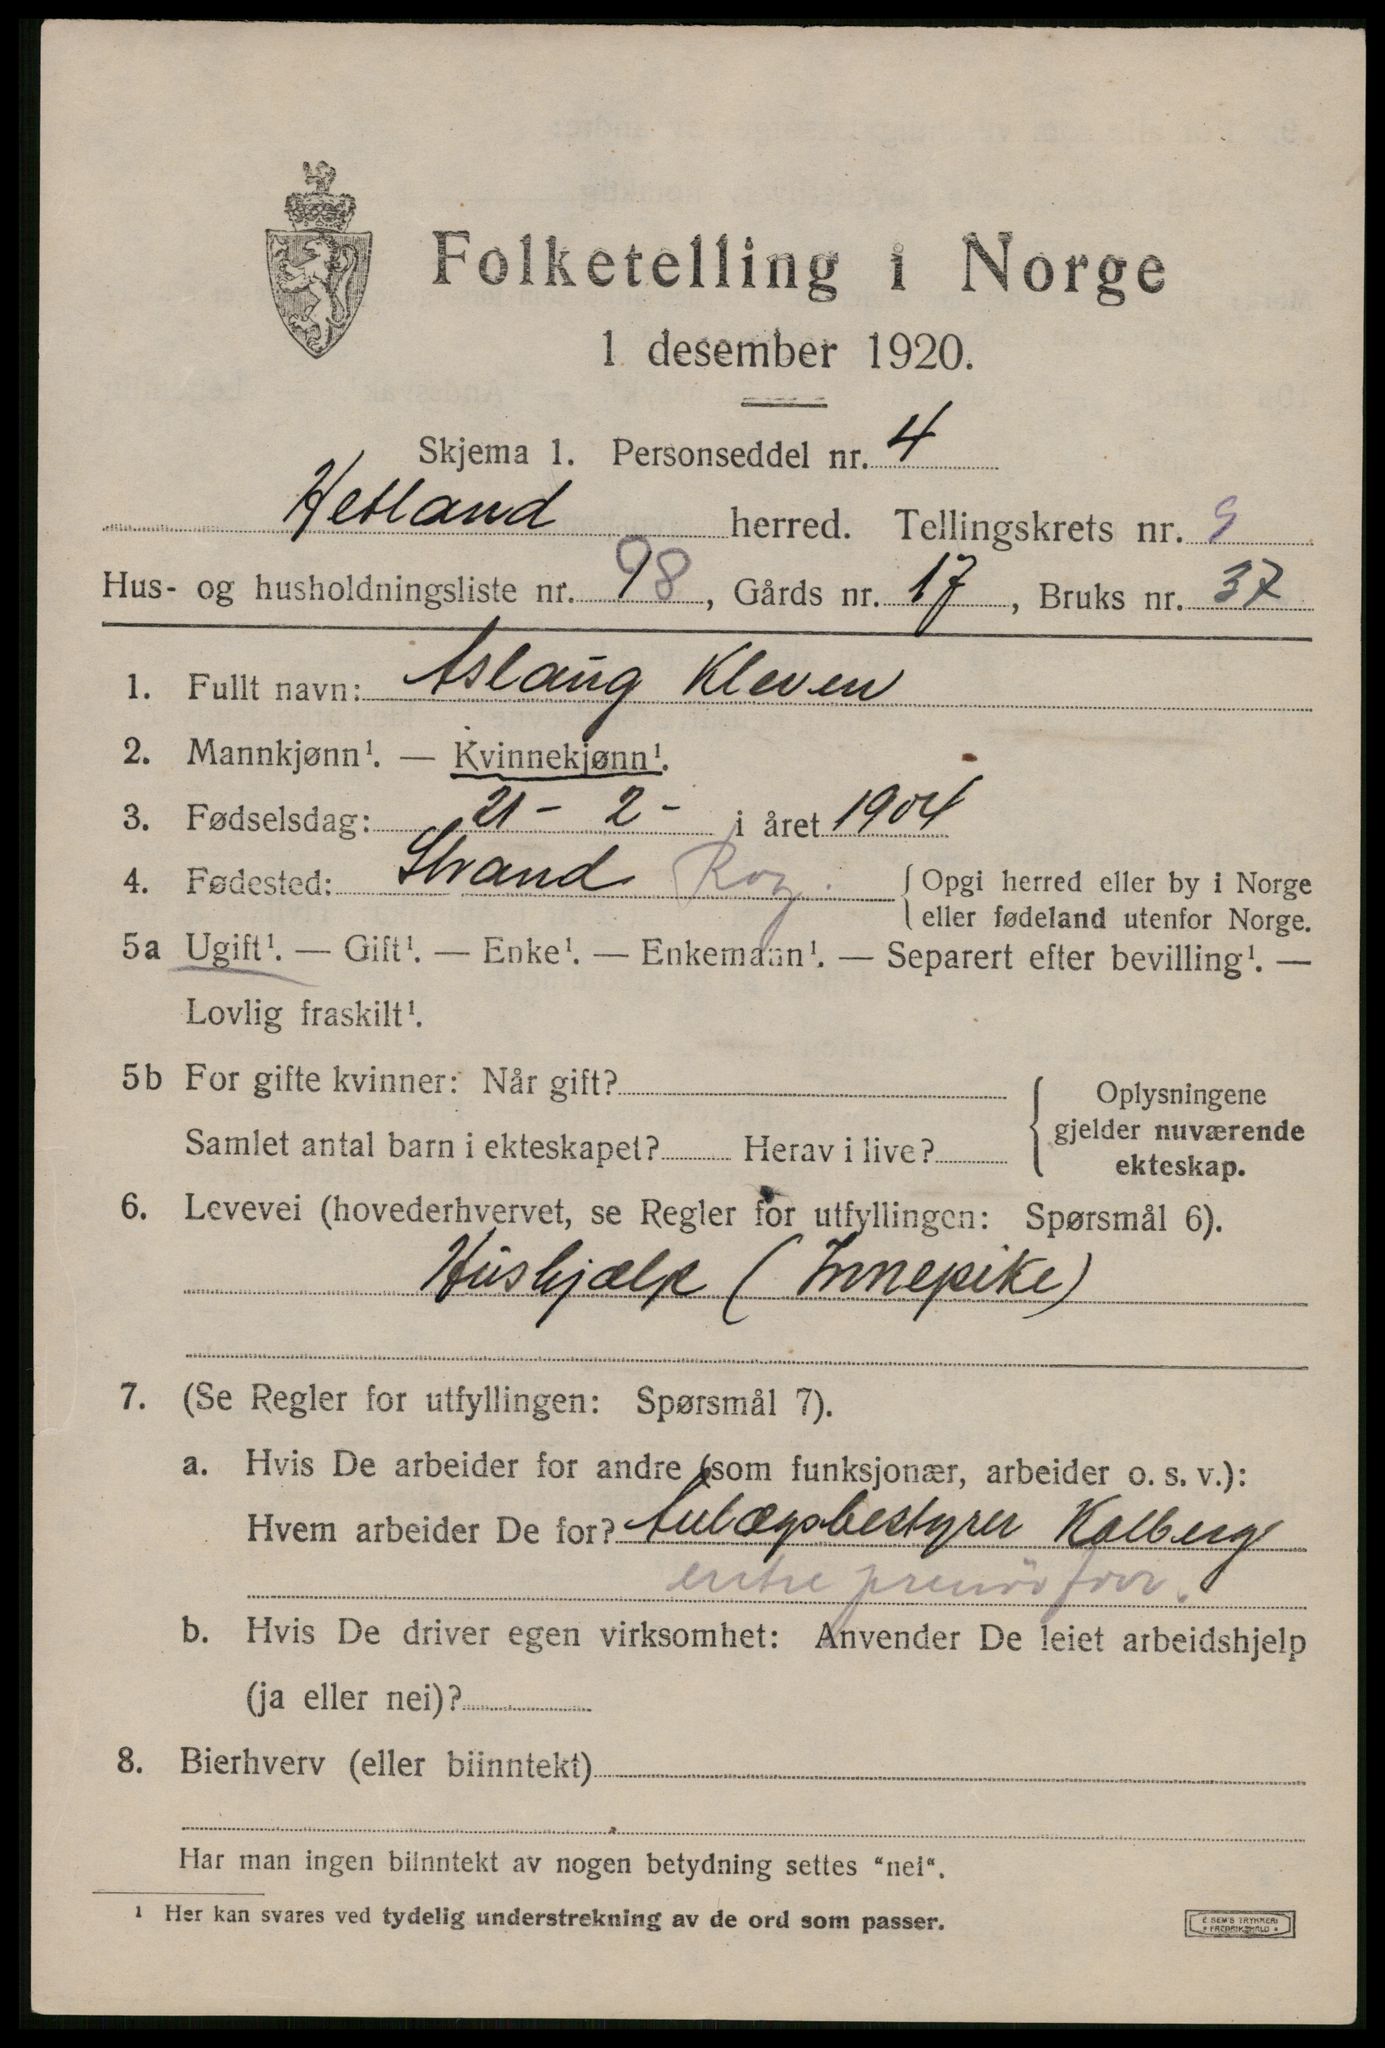 Folketelling i Norge
1 desember 1920.
Skjema 1. Personseddel nr. 4
Hetland herred. Tellingskrets nr. 9
Hus- og husholdningsliste nr. 98, Gårds nr. 17, Bruks nr. 37
1. Fullt navn: Aslaug Kleven
2. Mannkjønn¹. — Kvinnekjønn¹.
3. Fødselsdag: 21 - 2 - i året 1904
4. Fødested: Strand Rog. {Opgi herred eller by i Norge
eller fødeland utenfor Norge.
5a Ugift¹. — Gift¹. — Enke¹. — Enkemann¹. — Separert efter bevilling¹. —
Lovlig fraskilt¹.
5b For gifte kvinner: Når gift?
Samlet antal barn i ekteskapet? Herav i live?
{Oplysningene
gjelder nuværende
ekteskap.
6. Levevei (hovederhvervet, se Regler for utfyllingen: Spørsmål 6).
Hushjælp (Innepike)
7. (Se Regler for utfyllingen: Spørsmål 7).
a. Hvis De arbeider for andre (som funksjonær, arbeider o. s. v.):
Hvem arbeider De for? Anlægsbestyrer Kolberg
entreprenørforr.
b. Hvis De driver egen virksomhet: Anvender De leiet arbeidshjelp
(ja eller nei)?
8. Bierhverv (eller biinntekt)
Har man ingen biinntekt av nogen betydning settes "nei".
¹ Her kan svares ved tydelig understrekning av de ord som passer.
E SEM'S TRYKKERI
* FREDRIKSHALD *